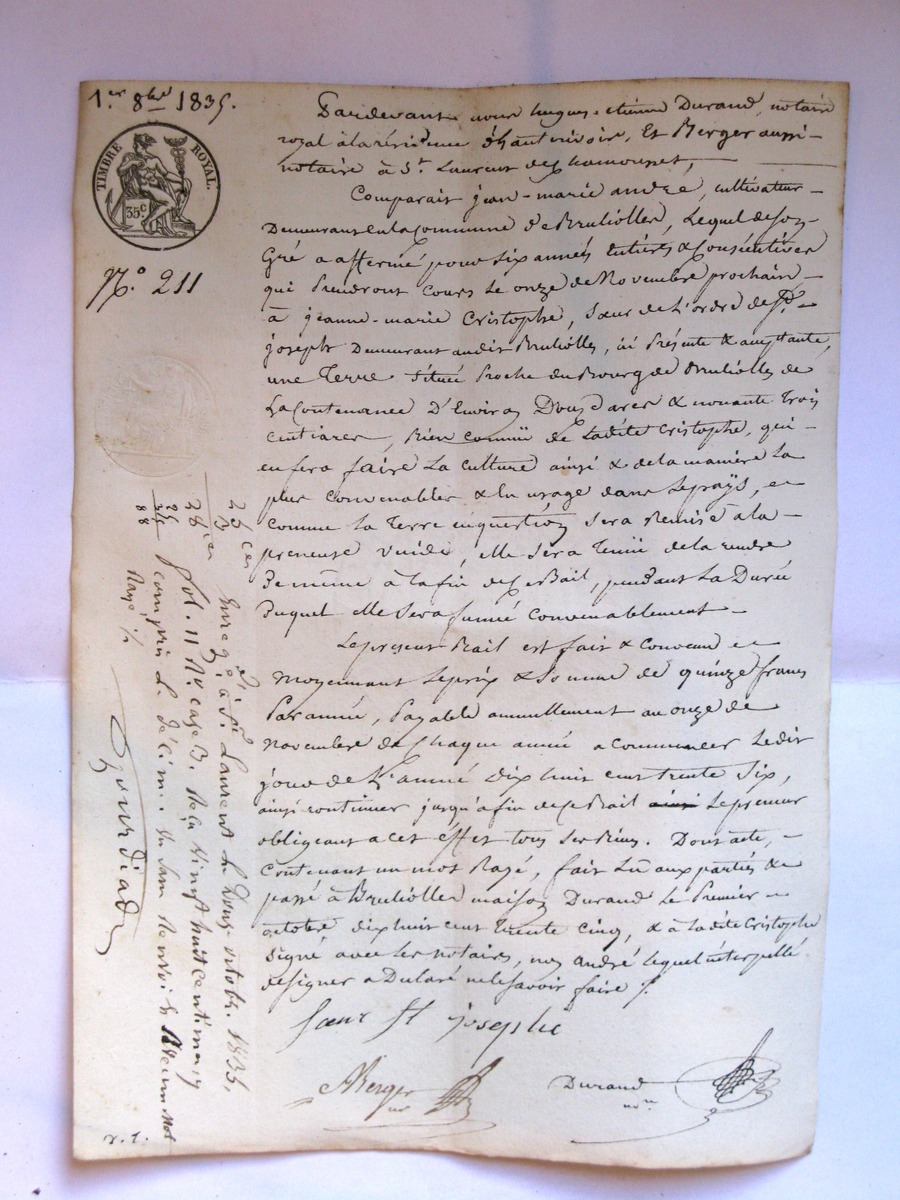 1er 8bre 1835.
TIMBRE ROYAL.
35c
No. 211
Pardevant nous hugues-étienne Durand, notaire
royal à la résidence d'hauterivoire, Et Berger aussi
notaire à St. Laurent de Chamousset,
Comparait jean-marie andré, cultivateur
Demeurant en la Commune de Brulliolles, Lequel de son
Gré a affermé pour six années entières & Consécutives
qui Prendront Cours Le onze de Novembre prochain
à jeanne-marie Cristophe, Sœur de L'ordre de St.
joseph Demeurant audit Brulliolles, ici Présente & acceptante,
une Terre située Proche du Bourg de Brulliolles de
La Contenance D'Environ Douze ares & nonante trois
centiares, Bien connue de Ladite Cristophe, qui
en fera faire La culture ainsi & de la manière La
plus Convenables & en usage dans Le pays, et
comme La Terre en question sera Remise à la
preneuse vuide, elle sera Tenue de la rendre
De même à la fin de Ce Bail, pendant La Durée
Duquel elle sera fumée convenablement
Le present Bail est fait & Convenu
moyennant Le prix & Somme de quinze francs
Par année, Payable annuellement au onze de
Novembre de Chaque année a commencer Ledit
jour de L'année dix huit cent trente Six,
ainsi continuer jusqu'à fin de Ce Bail ainsi Le preneur
obligeant a cet Effet tous Ses Biens. Dont acte,
Contenant un mot Rayé, fait Lu aux parties &
passé à Brulliolles maison Durand Le Premier
octobre dix huit cent trente Cinq, & à Ladite Cristophe
signé avec Les notaires, non andré Lequel interpellé
de signer a Déclaré ne le savoir faire
Sœur St josephe
Berger
nre
Durand
nre
25 ces
3
28 ces
25
88
Enreg. à St. Laurent Le Douze octobre 1835,
fol. 11 Ro. case 3. Reçu vingt huit centimes
compris Le décime sans Renvoi & Reçu un Mot
Rayé
r. 1.